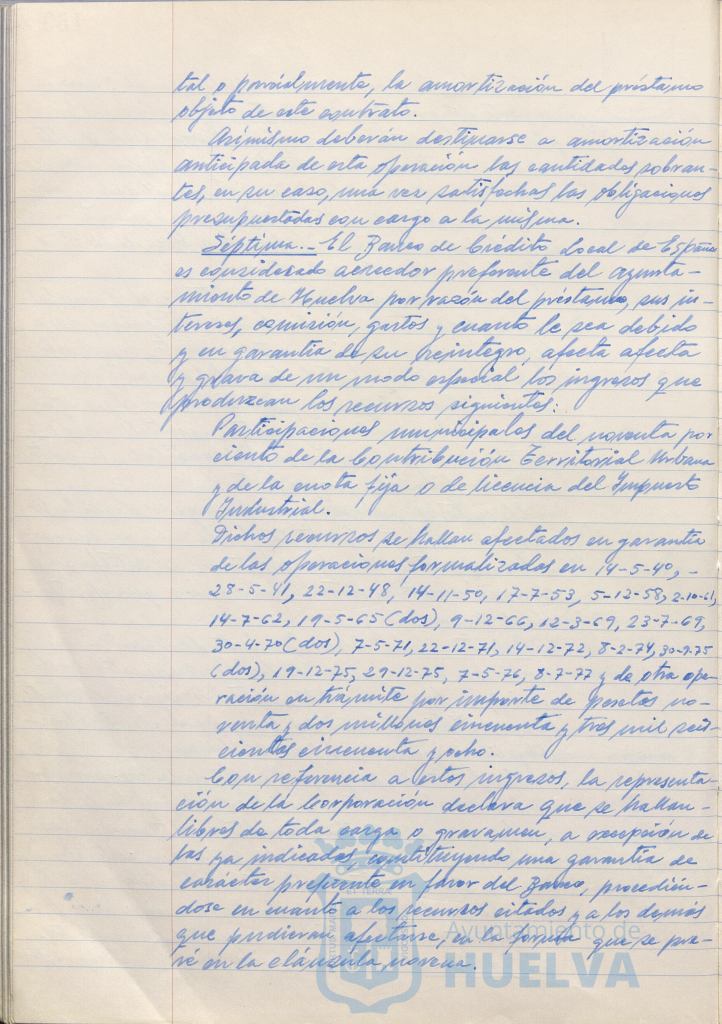 tal o parcialmente, la amortización del préstamo
objeto de este contrato.
Asimismo deberán destinarse a amortización
anticipada de esta operación las cantidades sobran-
tes, en su caso, una vez satisfechas las obligaciones
presupuestadas con cargo a la misma.
Séptima.- El Banco de Crédito Local de España
es considerado acreedor preferente del Ayunta-
miento de Huelva por razón del préstamo, sus in-
tereses, comisión, gastos y cuanto le sea debido
y en garantía de su reintegro, afecta afecta
y grava de un modo especial los ingresos que
produzcan los recursos siguientes:
Participaciones municipales del noventa por
ciento de la Contribución Territorial Urbana
y de la cuota fija o de licencia del Impuesto
Industrial.
Dichos recursos se hallan afectados en garantía
de las operaciones formalizadas en 14-5-40, -
28-5-41, 22-12-48, 14-11-50, 17-7-53, 5-12-58, 2-10-61,
14-7-62, 19-5-65 (dos), 9-12-66, 12-3-69, 23-7-69,
30-4-70 (dos), 7-5-71, 22-12-71, 14-12-72, 8-2-74, 30-9-75
(dos), 19-12-75, 29-12-75, 7-5-76, 8-7-77 y de otra ope-
ración en trámite por importe de pesetas no-
venta y dos millones cincuenta y tres mil seis-
cientas cincuenta y ocho.
Con referencia a estos ingresos, la representa-
ción de la Corporación declara que se hallan
libres de toda carga o gravamen, a excepción de
las ya indicadas constituyendo una garantía de
carácter preferente en favor del Banco, procedién-
dose en cuanto a los recursos citados y a los demás
que pudieran afectarse, en la forma que se pre-
vé en la cláusula novena.
Ayuntamiento de
HUELVA